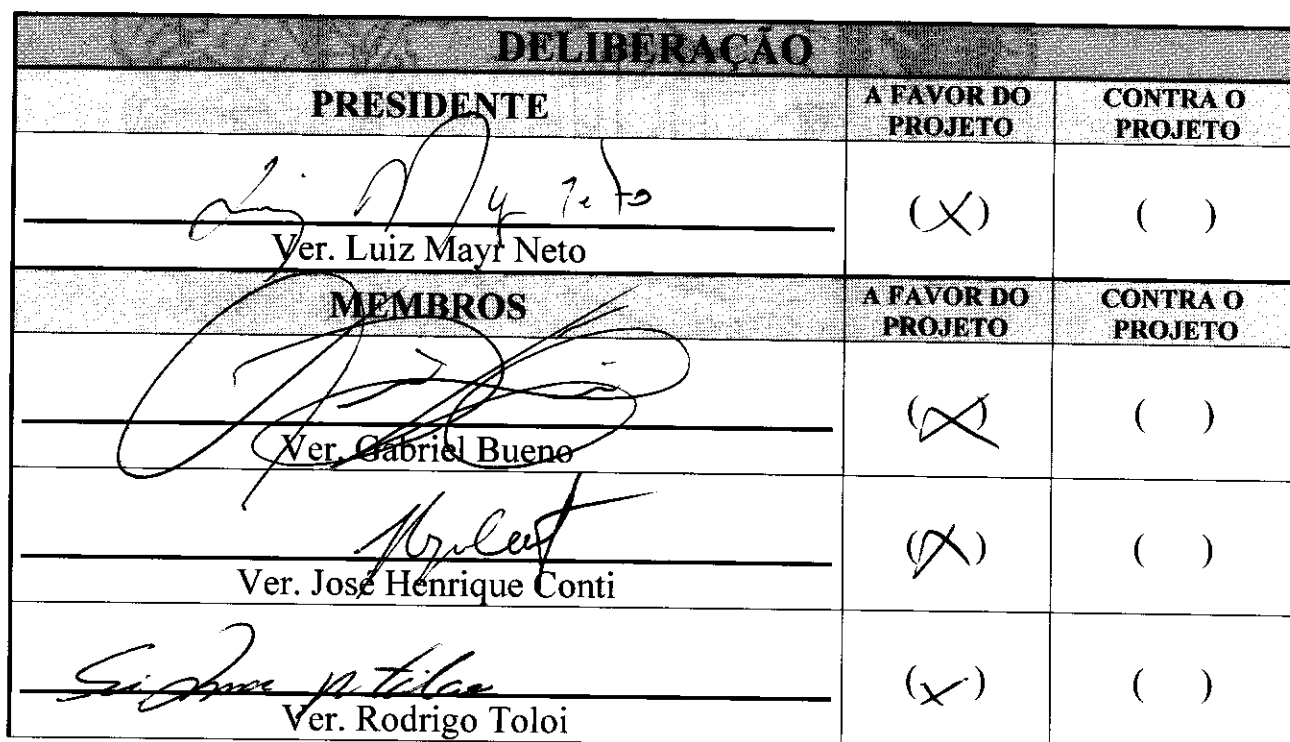 DELIBERAÇÃO
PRESIDENTE A FAVOR DO PROJETO CONTRA O PROJETO
(X) ( )
Ver. Luiz Mayr Neto
MEMBROS A FAVOR DO PROJETO CONTRA O PROJETO
(X) ( )
Ver. Gabriel Bueno
(X) ( )
Ver. José Henrique Conti
(X) ( )
Ver. Rodrigo Toloi